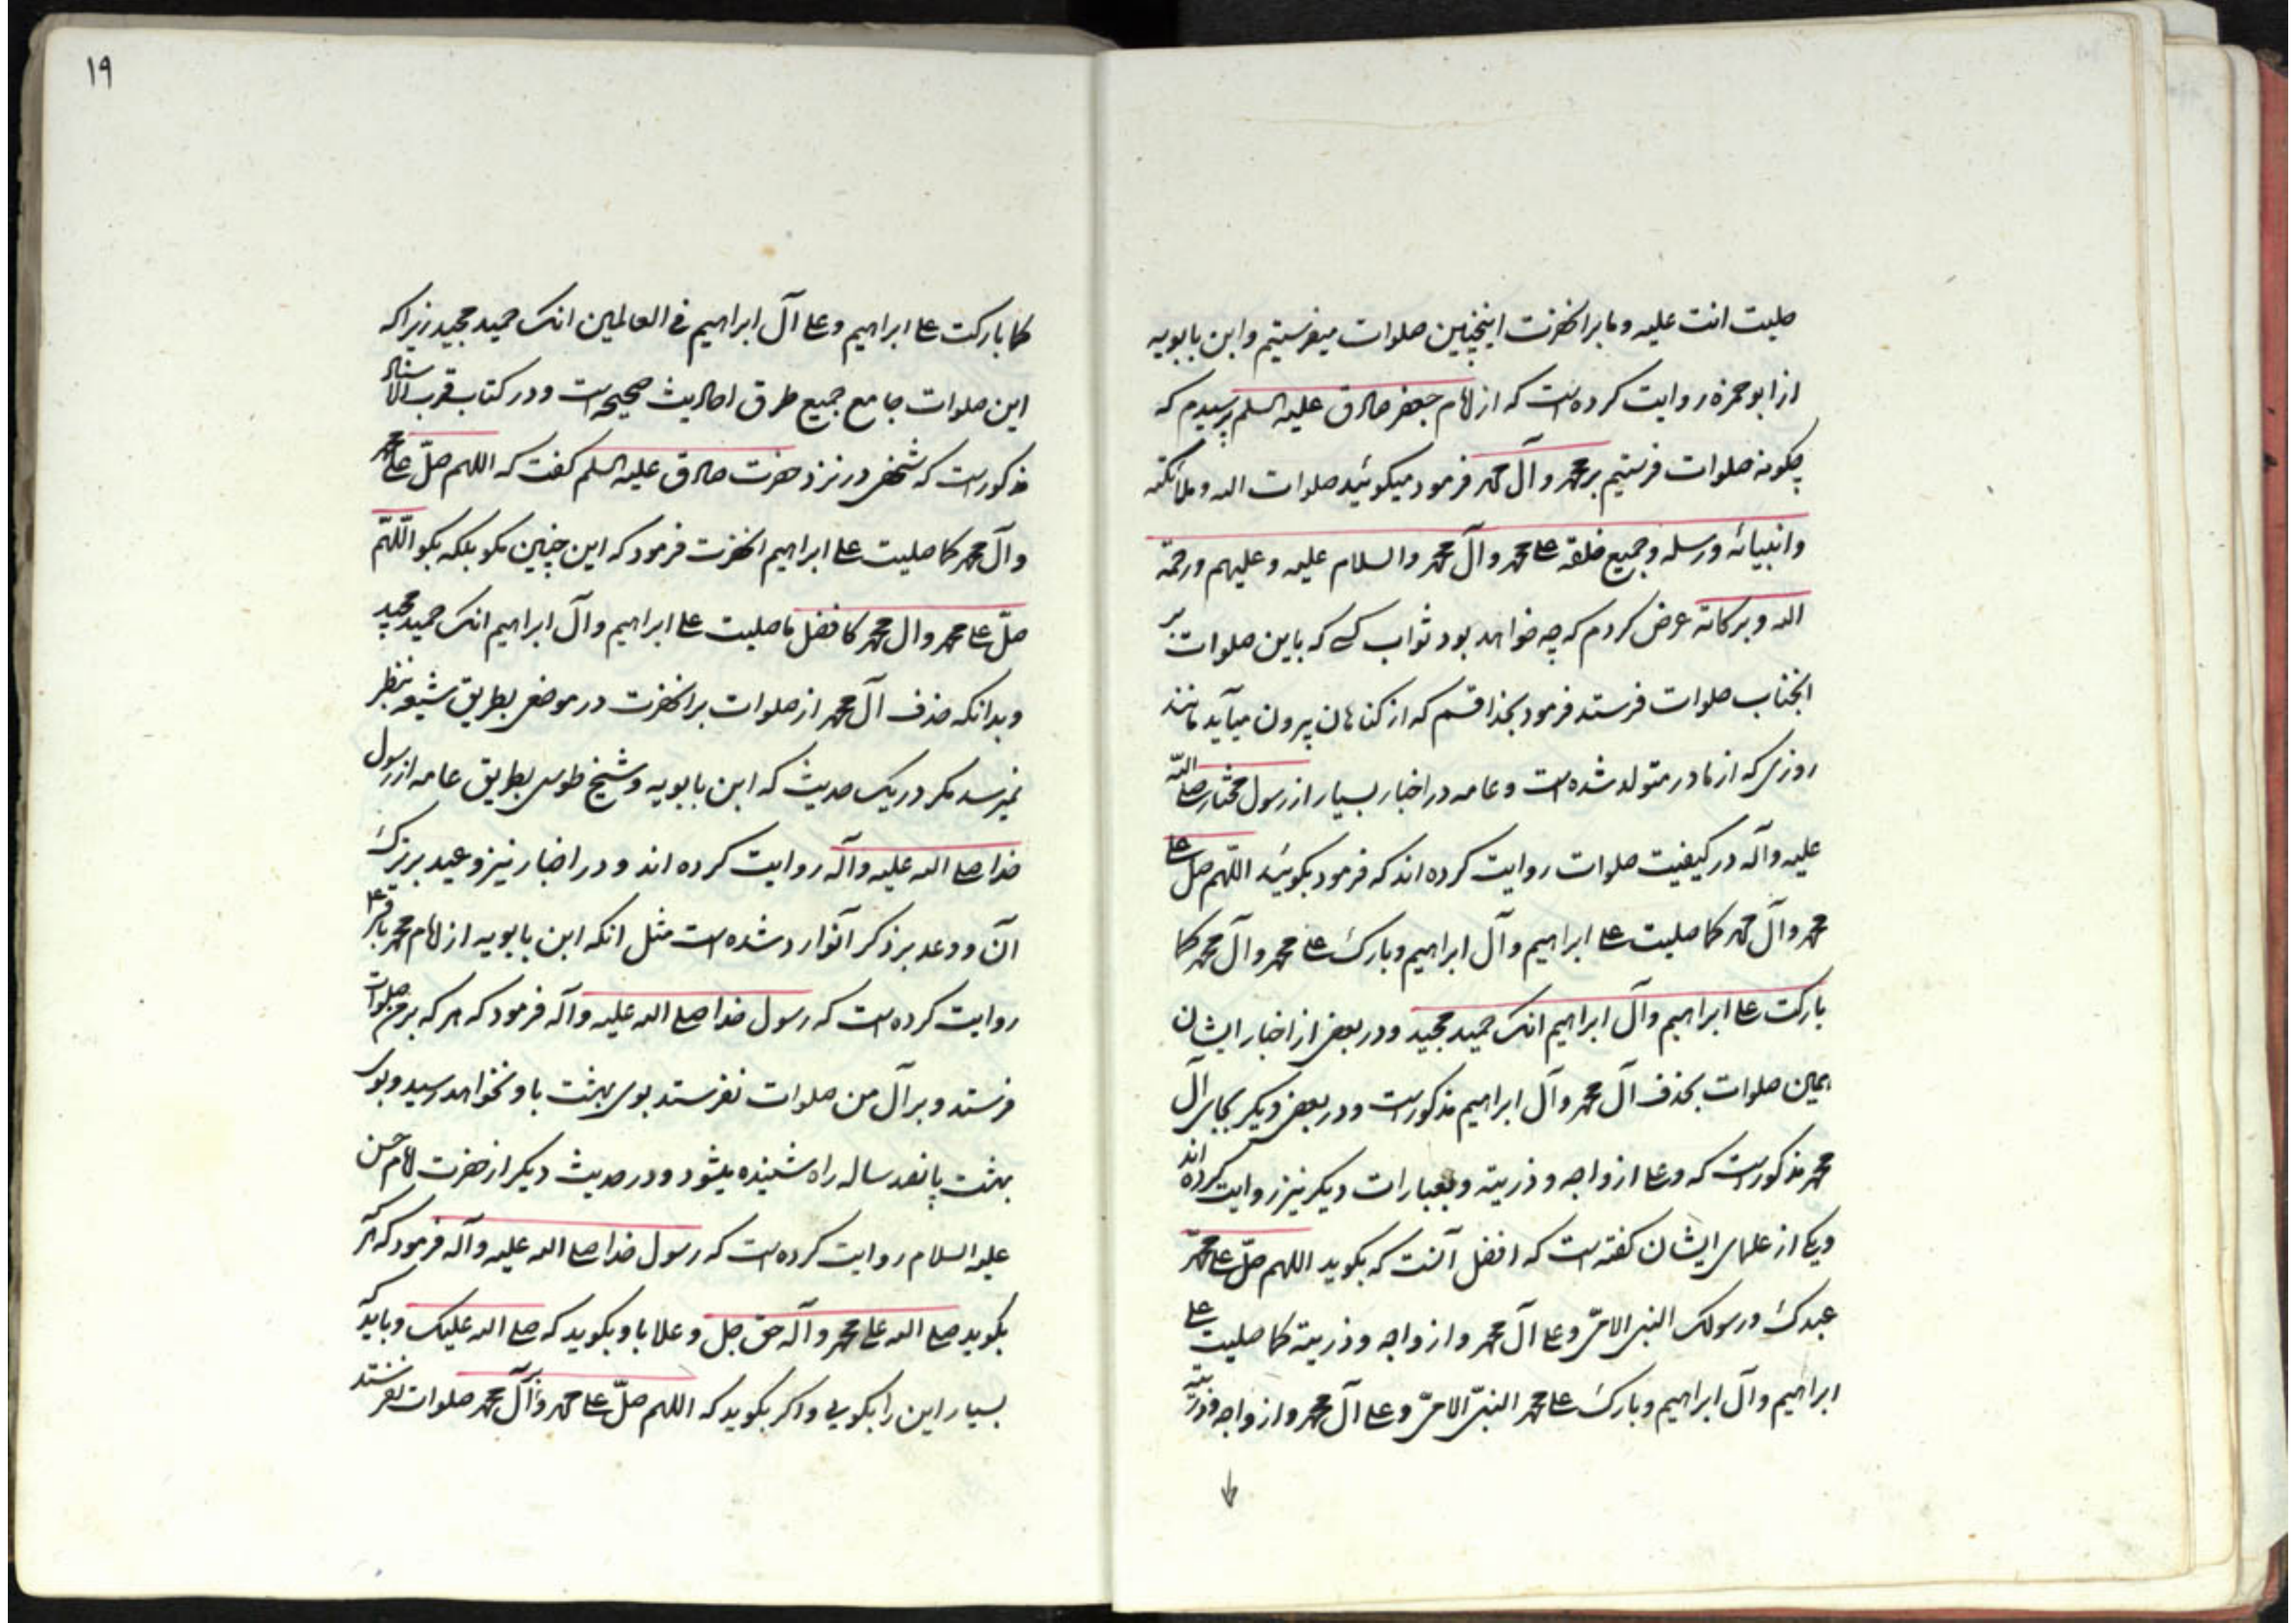 صلیت انت علیه و ما بر انحضرت اینچنین صلوات میفرستیم و ابن بابویه
از ابو حمزه روایت کرده است که از امام جعفر صادق علیه السلم پرسیدم که
چکونه صلوات فرستیم بر محمد و آل محمد فرمود میکوئید صلوات الله و ملائکته
و انبیائه و رسله و جمیع خلقه علی محمد و آل محمد و السلام علیه و علیهم و رحمة
الله و برکاته عرض کردم که چه خواهد بود ثواب کسی که باین صلوات بر
انجناب صلوات فرستد فرمود بخدا قسم که از کناهان بیرون میآید مانند
روزی که از مادر متولد شده است و عامه در اخبار بسیار از رسول مختار صلی الله
علیه و آله در کیفیت صلوات روایت کرده اند که فرمود بکوئید اللهم صل علی
محمد و آل محمد کما صلیت علی ابراهیم و آل ابراهیم و بارک علی محمد و آل محمد کما
بارکت علی ابراهیم و آل ابراهیم انک حمید مجید و در بعضی از اخبار ایشان
همین صلوات بحذف آل محمد و آل ابراهیم مذکور است و در بعضی دیکر بجای آل
محمد مذکور است که و علی ازواجه و ذریته و بعبارات دیکر نیز روایت کرده اند
و یکی از علمای ایشان کفته است که افضل آنست که بکوید اللهم صلّ علی محمّد
عبدک و رسولک النبی الامیّ و علی آل محمد و ازواجه و ذریته کما صلیت علی
ابراهیم و آل ابراهیم و بارک علی محمد النبیّ الامیّ و علی آل محمد و ازواجه و ذریّته
۱۹
کما بارکت علی ابراهیم و علی آل ابراهیم فی العالمین انک حمید مجید زیراکه
این صلوات جامع جمیع طرق احادیث صحیحه است و در کتاب قرب الاسناد
مذکور است که شخصی در نزد حضرت صادق علیه السلم کفت که اللهم صلّ علی محمد
و آل محمد کما صلیت علی ابراهیم انحضرت فرمود که این چنین مکو بلکه بکو اللّهمّ
صلّ علی محمد و ال محمد کافضل ما صلیت علی ابراهیم و آل ابراهیم انک حمید مجید
و بدانکه حذف آل محمد از صلوات بر انحضرت در موضعی بطریق شیعه بنظر
نمیرسد مکر در یک حدیث که ابن بابویه و شیخ طوسی بطریق عامه از رسول
خدا صلی الله علیه و آله روایت کرده اند و در اخبار نیز وعید بر ترک
آن و وعد بر ذکر آن وارد شده است مثل انکه ابن بابویه از امام محمد باقر ع
روایت کرده است که رسول خدا صلی الله علیه و آله فرمود که هر که بر من صلوات
فرستد و بر آل من صلوات نفرستد بوی بهشت باو نخواهد رسید و بوی
بهشت پانصد ساله راه شنیده میشود و در حدیث دیکر از حضرت امام حسن
علیه السلام روایت کرده است که رسول خدا صلی الله علیه و آله فرمود که هر که
بکوید صلی الله علی محمد و آله حق جل و علا باو بکوید که صلی الله علیک و باید که
بسیار این را بکویی و اکر بکوید که اللهم صلّ علی محمد و بر آل محمد صلوات نفرستد